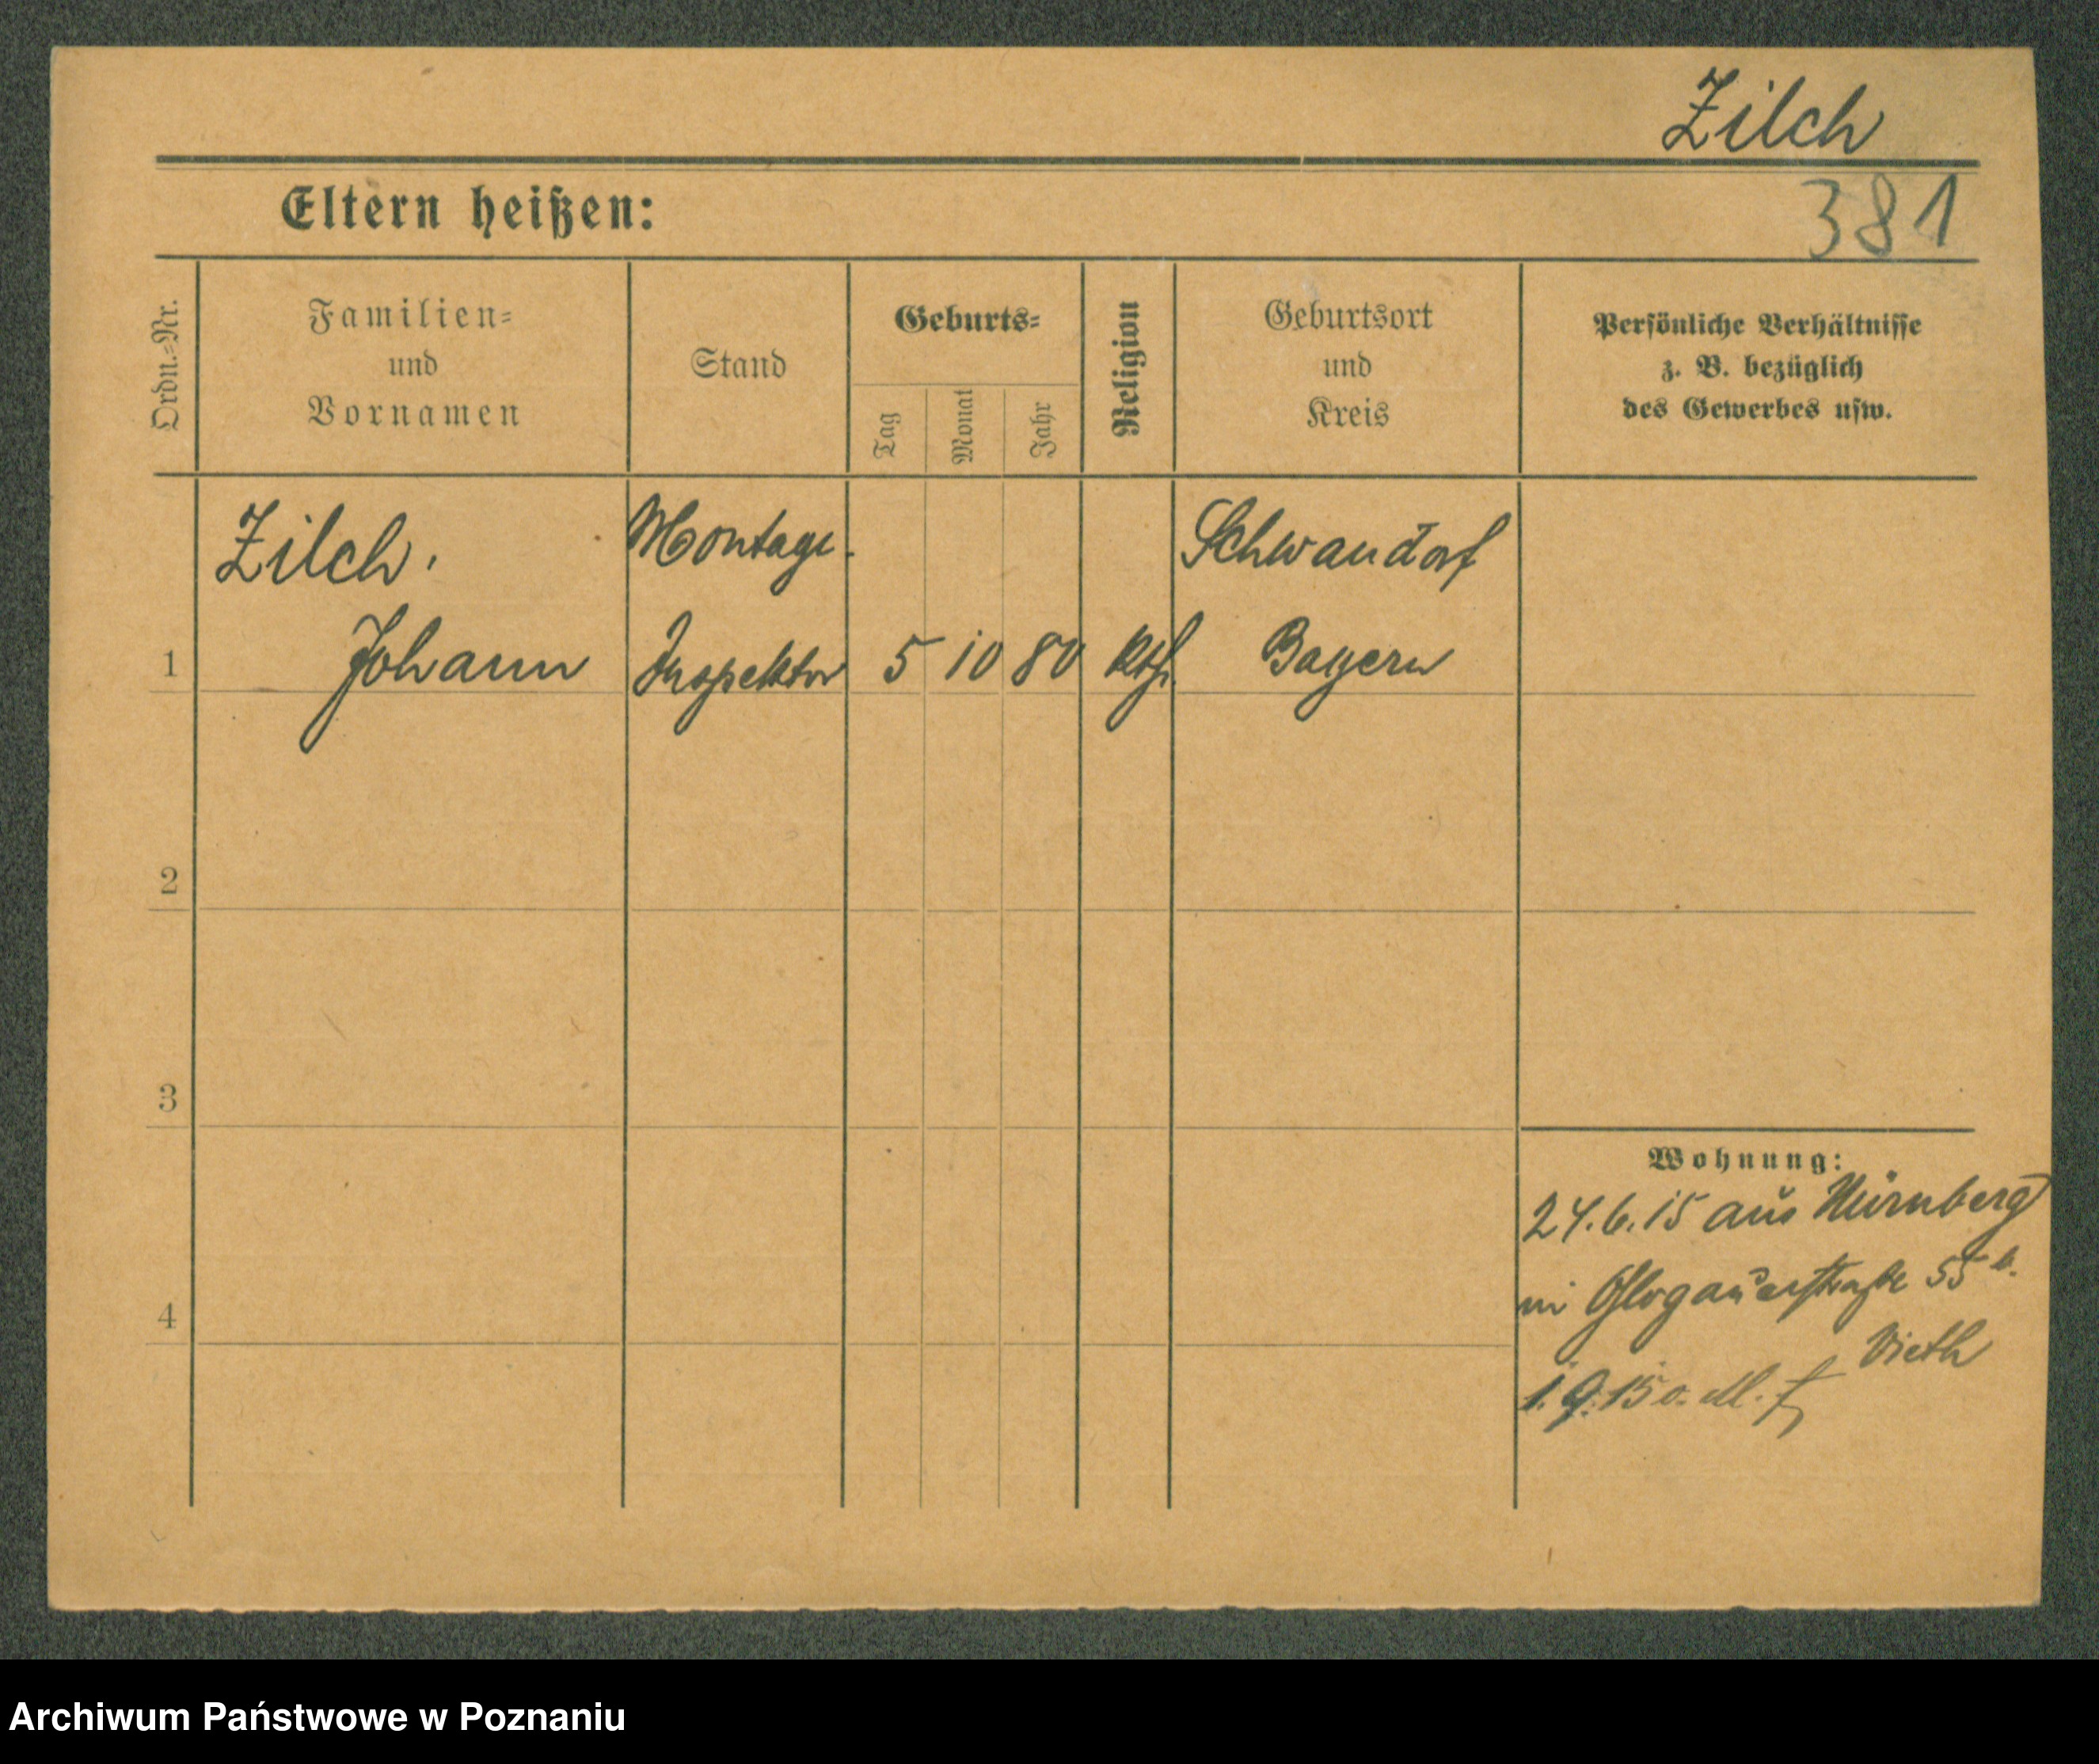 Zilch
381
Eltern heißen:
Ordn.-Nr.
Familien-
und
Vornamen
Stand
Geburts-
Tag
Monat
Jahr
Religion
Geburtsort
und
Kreis
Persönliche Verhältnisse
z. B. bezüglich
des Gewerbes usw.
Zilch.
Montage-
Schwandorf
1
Johann
Inspektor
5
10
80
kth.
Bayern
2
3
4
Wohnung:
24.6.15 aus Nürnberg
Glogauerstraße 55
Vieth
1.9.15
Archiwum Państwowe w Poznaniu